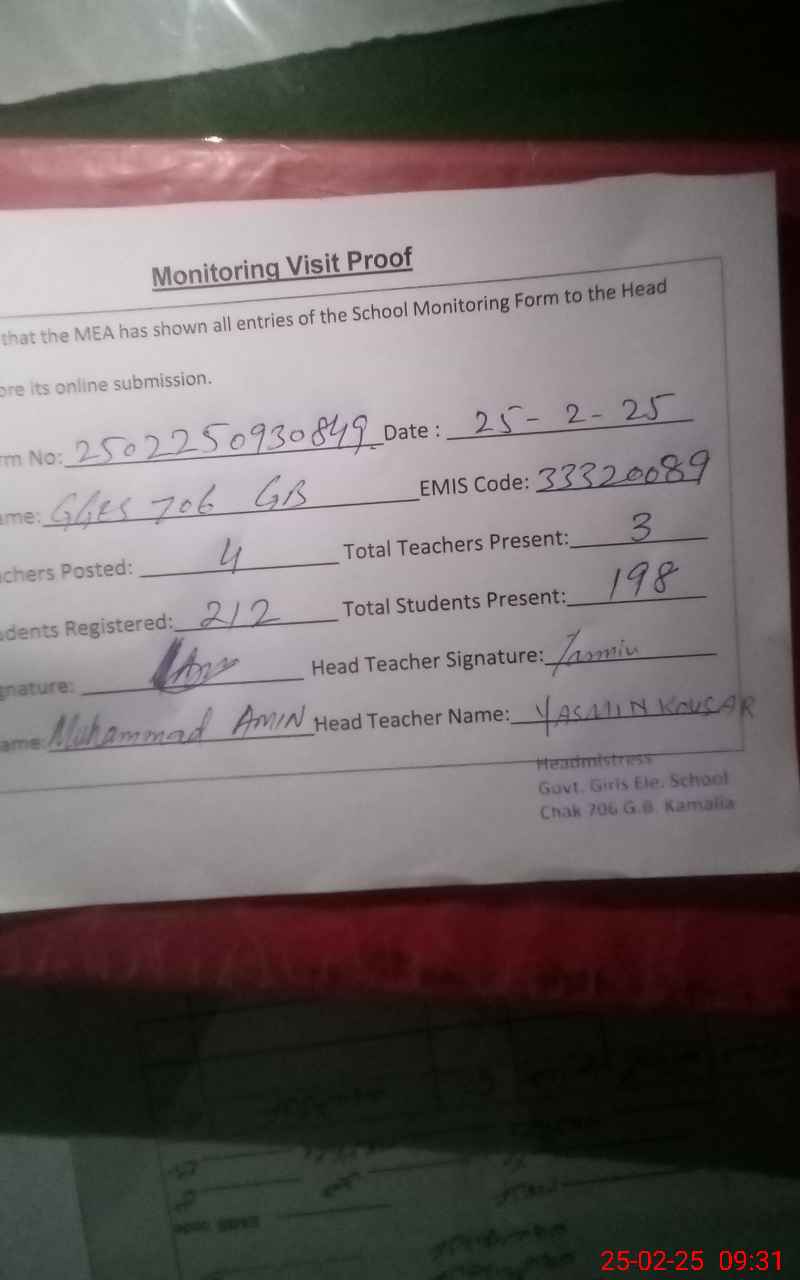 Monitoring Visit Proof
that the MEA has shown all entries of the School Monitoring Form to the Head
ore its online submission.
rm No: 2502250930849 Date : 25-2-25
ame: GGES 706 GB EMIS Code: 33320089
chers Posted: 4 Total Teachers Present: 3
dents Registered: 212 Total Students Present: 198
gnature: Head Teacher Signature: Yasmin
ame: Muhammad AMIN Head Teacher Name: YASMIN KOUSAR
Headmistress
Govt. Girls Ele. School
Chak 706 G.B. Kamalia
25-02-25 09:31